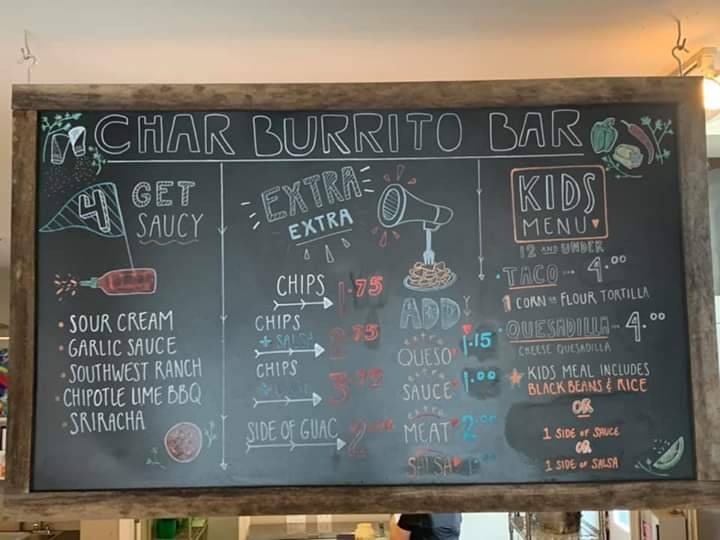 CHAR BURRITO BAR
4
GET
SAUCY
• SOUR CREAM
• GARLIC SAUCE
• SOUTHWEST RANCH
• CHIPOTLE LIME BBQ
• SRIRACHA
EXTRA
EXTRA
CHIPS 1.75
CHIPS
+ SALSA
CHIPS
3.75
SIDE OF GUAC
ADD
EXTRA
QUESO 1.15
EXTRA
SAUCE 1.00
EXTRA
MEAT 2.00
SALSA
KIDS
MENU
12 AND UNDER
• TACO 4.00
1 CORN OR FLOUR TORTILLA
• QUESADILLA 4.00
CHEESE QUESADILLA
KIDS MEAL INCLUDES
BLACK BEANS & RICE
OR
1 SIDE OF SAUCE
OR
1 SIDE OF SALSA